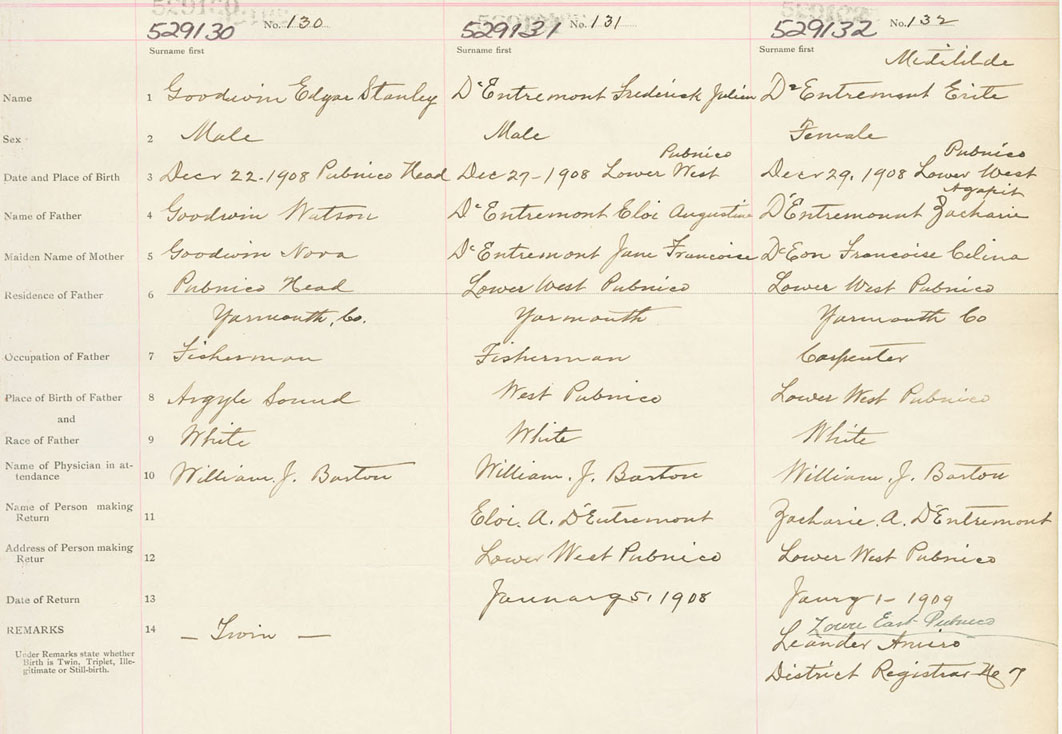 529130 No. 130 529131 No. 131 529132 No. 132
Surname first Surname first Surname first
Metilde
Name 1 Goodwin Edgar Stanley D'Entremont Frederick Julien D'Entremont Erite
Sex 2 Male Male Female
Pubnico Pubnico
Date and Place of Birth 3 Decr 22-1908 Pubnico Head Dec 27-1908 Lower West Decr 29, 1908 Lower West
Agapit
Name of Father 4 Goodwin Watson D'Entremont Eloi Augustine D'Entremount Zacharie
Maiden Name of Mother 5 Goodwin Nora D'Entremont Jane Francoise D'Eon Francoise Celina
Residence of Father 6 Pubnico Head Lower West Pubnico Lower West Pubnico
Yarmouth, Co. Yarmouth Yarmouth Co
Occupation of Father 7 Fisherman Fisherman Carpenter
Place of Birth of Father 8 Argyle Sound West Pubnico Lower West Pubnico
and
Race of Father 9 White White White
Name of Physician in at-
tendance 10 William. J. Barton William. J. Barton William. J. Barton
Name of Person making
Return 11 Eloi. A. D'Entremont Zacharie. A. D'Entremont
Address of Person making
Retur 12 Lower West Pubnico Lower West Pubnico
Date of Return 13 January 5, 1908 Jany 1-1909
Lower East Pubnico
REMARKS 14 — Twin — Leander Amiro
Under Remarks state whether
Birth is Twin, Triplet, Ille-
gitimate or Still-birth.
District Registrar No 7